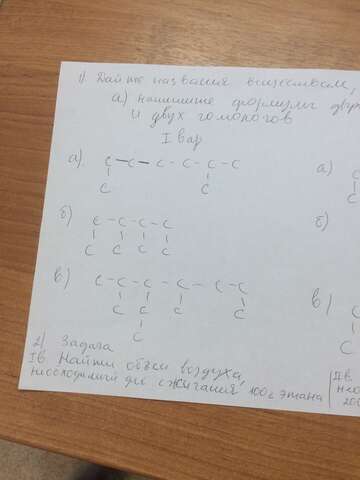 1) Дайте названия веществам,
а) напишите формулы двух
и двух гомологов
I вар
а) C — C — C - C - C - C
C C
б) C - C - C - C
C C C C
в) C - C - C - C - C - C
C C C C
C
2) Задача
Iв. Найти объем воздуха,
необходимый для сжигания 100г этана
а)
C
C
б)
в)
C
IIв.
200